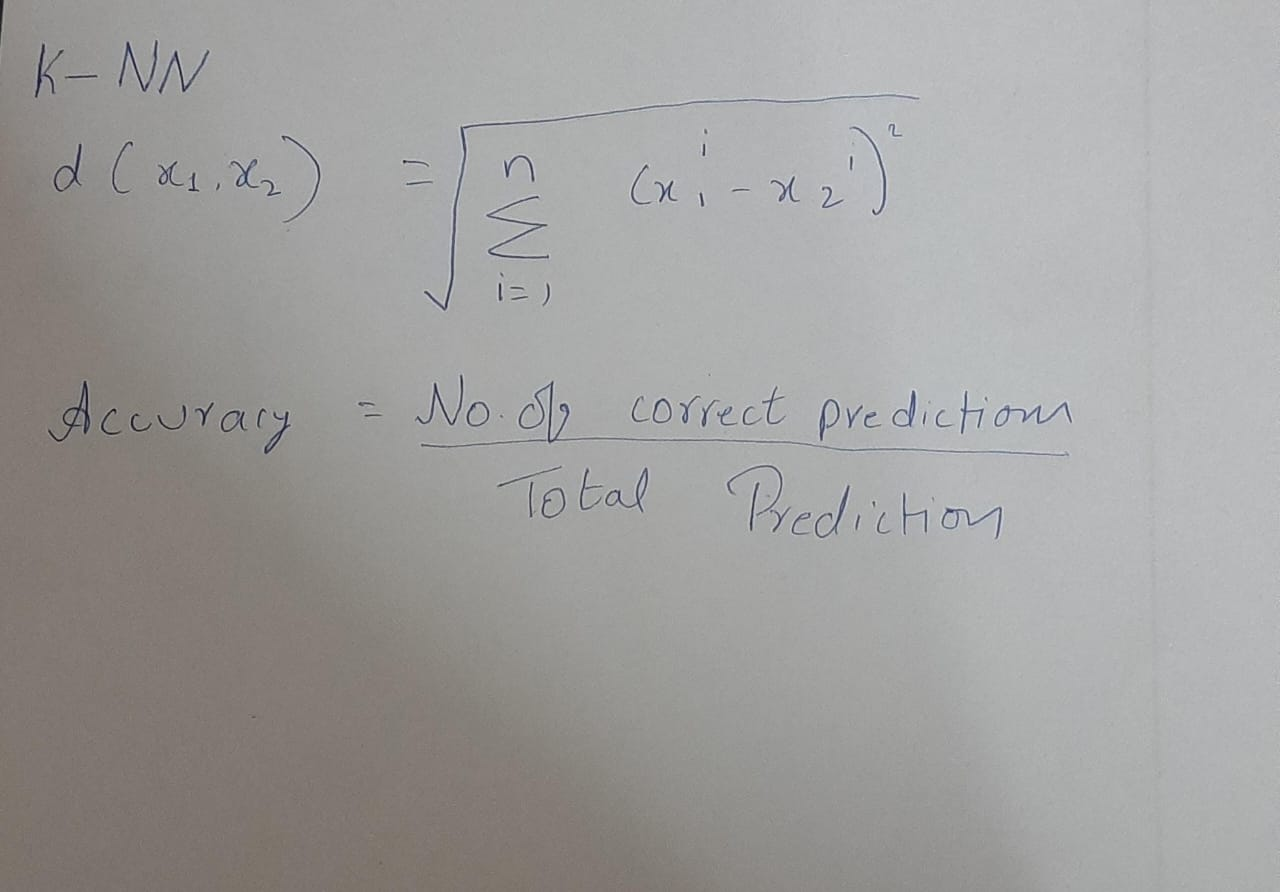 K-NN
d(x₁,x₂) = √ n Σ i=1 (x₁ⁱ - x₂ⁱ)²
Accuracy = No. of correct predictions
Total Prediction